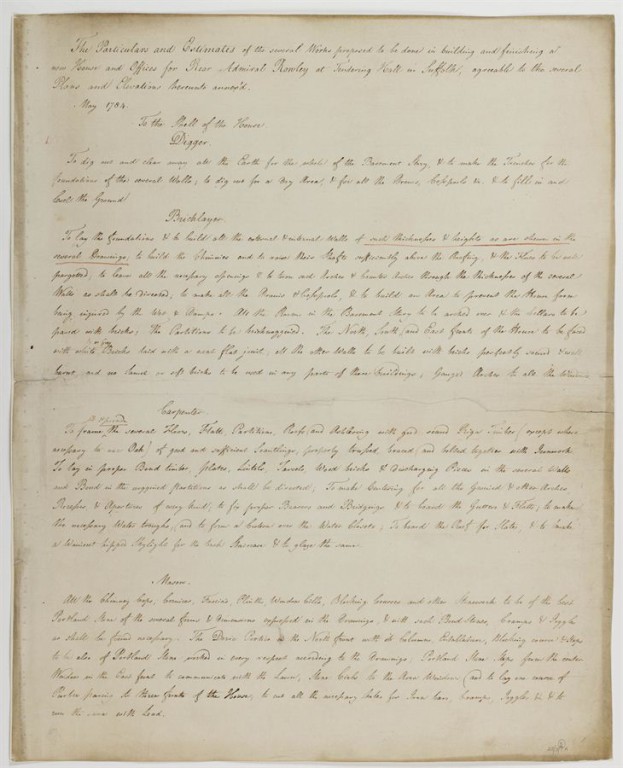 The Particulars and Estimates of the several Works proposed to be done in building and finishing a
new House and Offices for Rear Admiral Rowley at Tendering Hall in Suffolk, agreeable to the several
Plans and Elevations hereunto annex'd.
May 1784.
To the Shell of the House
Digger.
To dig out and clear away all the Earth for the whole of the Basement Story, & to make the Trenches for the
foundations of the several Walls; to dig out for a dry Area & for all the Drains, Cesspools &c. & to fill in and
level the Ground
Bricklayer.
To lay the foundations & to build all the external & internal Walls of such thicknesses & heights as are shewn in the
several Drawings; to build the Chimnies and to raise their Shafts sufficiently above the Roofing, & the Flues to be well
pargeted; to leave all the necessary openings & to turn
Walls as shall be directed; to make all the Drains & Cesspools, & to build an Area to prevent the House from
being injured by the Wet, & Damps. All the Rooms in the Basement Story to be arched over & the Cellars to be
paved with bricks; The Partitions to be bricknogged. The North, South, and East fronts of the House to be faced
with white Bricks laid with a neat flat joint, all the other Walls to be built with bricks perfectly sound & well
burnt, and no
Carpenter
To frame the several Floors, Flatts, Partitions, Roofs, and Ashlering with good sound Riga Timber (except where
necessary to use Oak) of good and sufficient Scantlings, properly trussed, braced, and bolted together with Ironwork
To lay in proper Bond timber, plates, Lintels, Tassels, Wood bricks & Discharging Pieces in the several Walls
and Bond in the nogged partitions as shall be directed; To make Centering for all the Groined & other Arches
Recesses & Apertures of every kind; to fix proper Bearers and Bridgings & to board the Gutters & Flatts; to make
the necessary Water trunks, and to form a Cistern over the Water Closets; To board the Roof for Slate; & to make
a skylight for the back Staircase & to glaze the same.
Mason.
All the Chimney Caps, Cornices, Fascias, Plinths, Window Cells, Blocking Courses and other Stonework to be of the best
Portland Stone of the several forms & dimensions expressed in the Drawings, & with such Bond Stones, Cramps & Joggles
as shall be found necessary. The Doric Portico in the North front with its Columns, Entablature, blocking course & steps
to be also of Portland Stone worked in every respect according to the Drawings; Portland Stone Steps from the center
Window in the East front to communicate with the Lawn, Stone
Portland paving to three fronts of the House; to cut all the necessary holes for Iron bars, Cramps, Joggles &c & to
run the same with Lead.